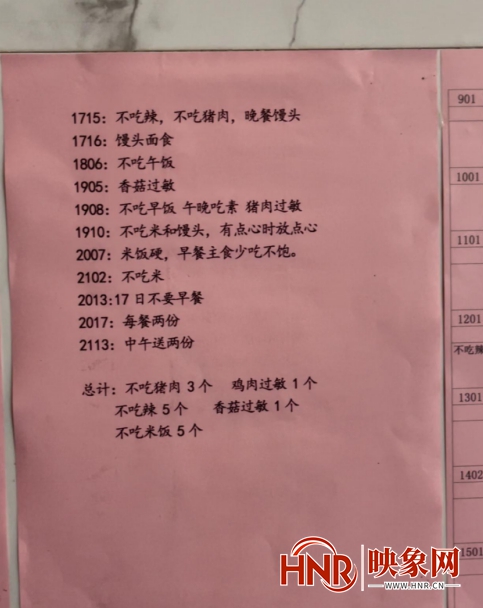 1715：不吃辣，不吃猪肉，晚餐馒头
1716：馒头面食
1806：不吃午饭
1905：香菇过敏
1908：不吃早饭 午晚吃素 猪肉过敏
1910：不吃米和馒头，有点心时放点心
2007：米饭硬，早餐主食少吃不饱。
2102：不吃米
2013:17日不要早餐
2017：每餐两份
2113：中午送两份
总计：不吃猪肉 3 个 鸡肉过敏 1 个
不吃辣 5 个 香菇过敏 1 个
不吃米饭 5 个
901
1001
1101
1201
不吃辣
1301
1402
1501
HNR 映象网
WWW.HNR.CN